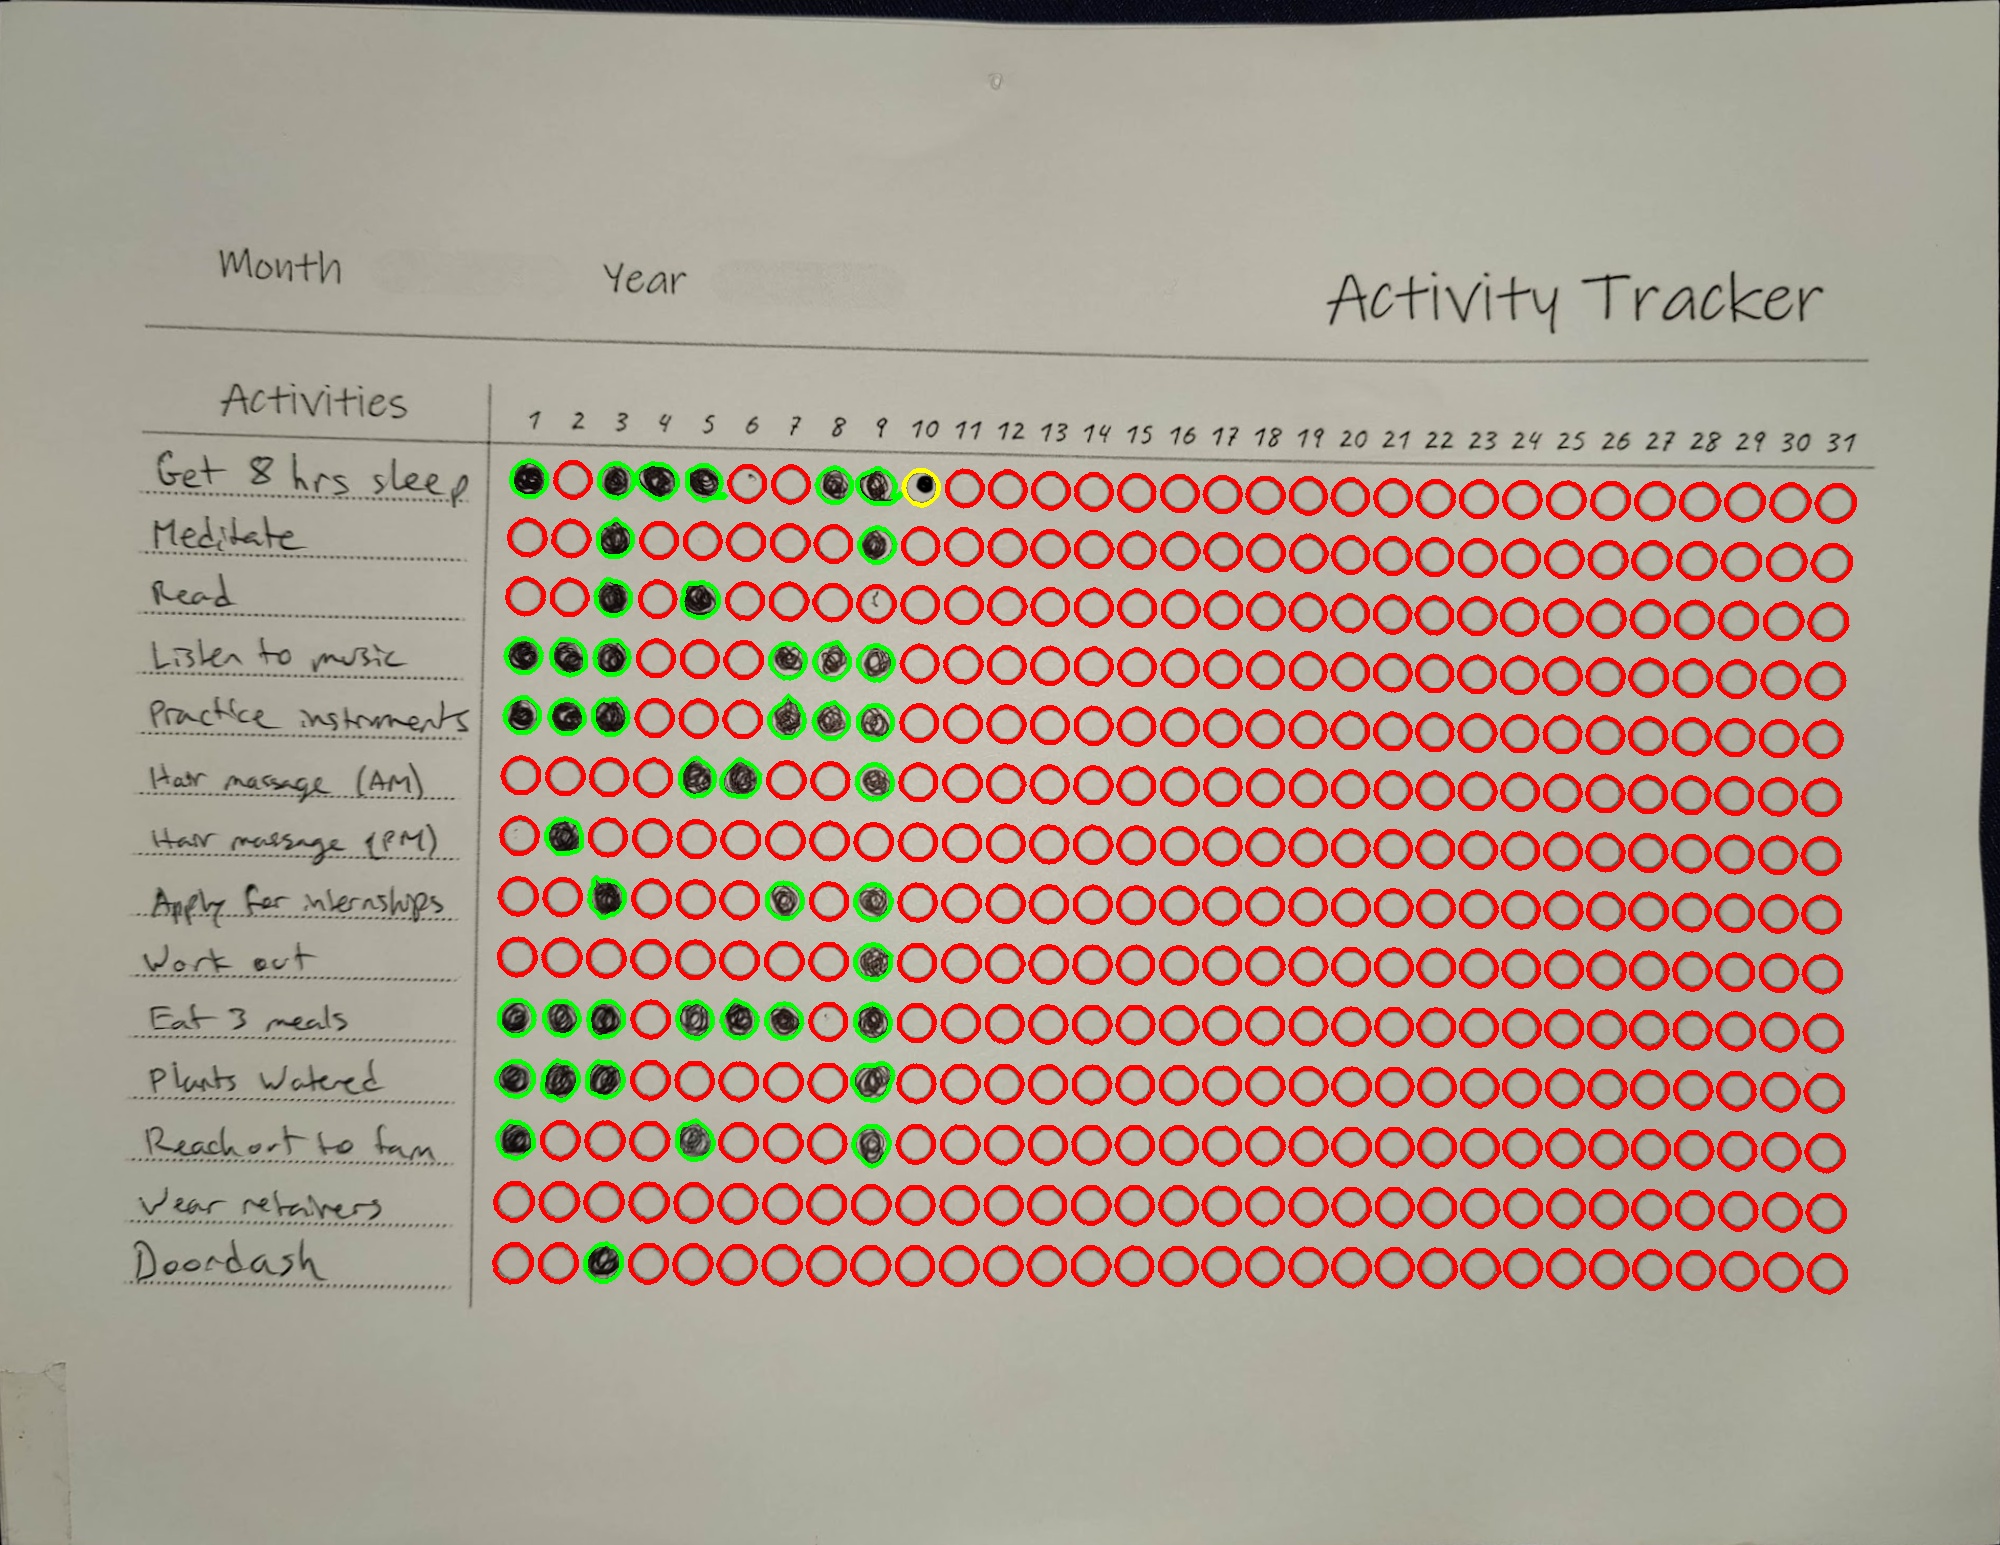 Month Year
Activity Tracker
Activities 1 2 3 4 5 6 7 8 9 10 11 12 13 14 15 16 17 18 19 20 21 22 23 24 25 26 27 28 29 30 31
Get 8 hrs sleep
Meditate
Read
Listen to music
Practice instruments
Hair massage (AM)
Hair massage (PM)
Apply for internships
Work out
Eat 3 meals
Plants Watered
Reach out to fam
Wear retainers
Doordash